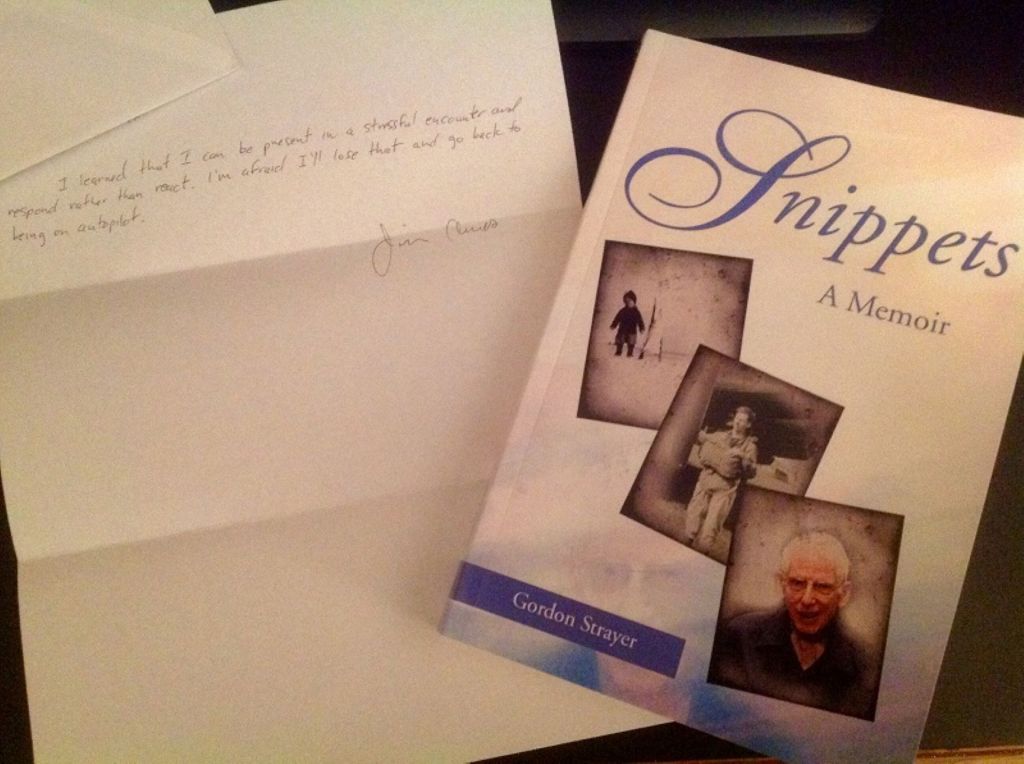 I learned that I can be present in a stressful encounter and
respond rather than react. I'm afraid I'll lose that and go back to
being on autopilot.
Jim
Snippets
A Memoir
Gordon Strayer